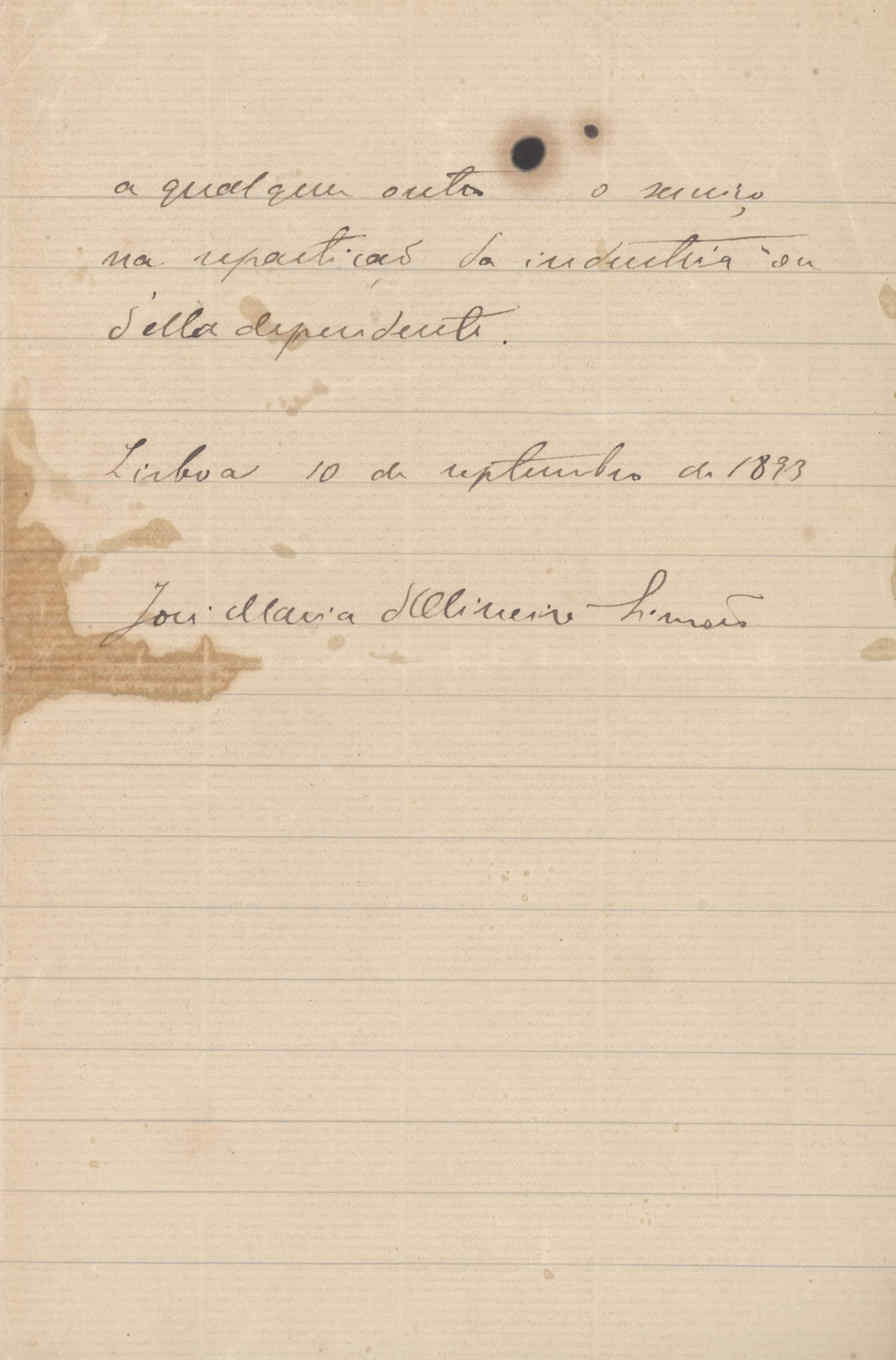 a qualquer outro o serviço
na repartição da industria ou
d'ella dependente.
Lisboa 10 de septembro de 1893
José Maria d'Oliveira Simões